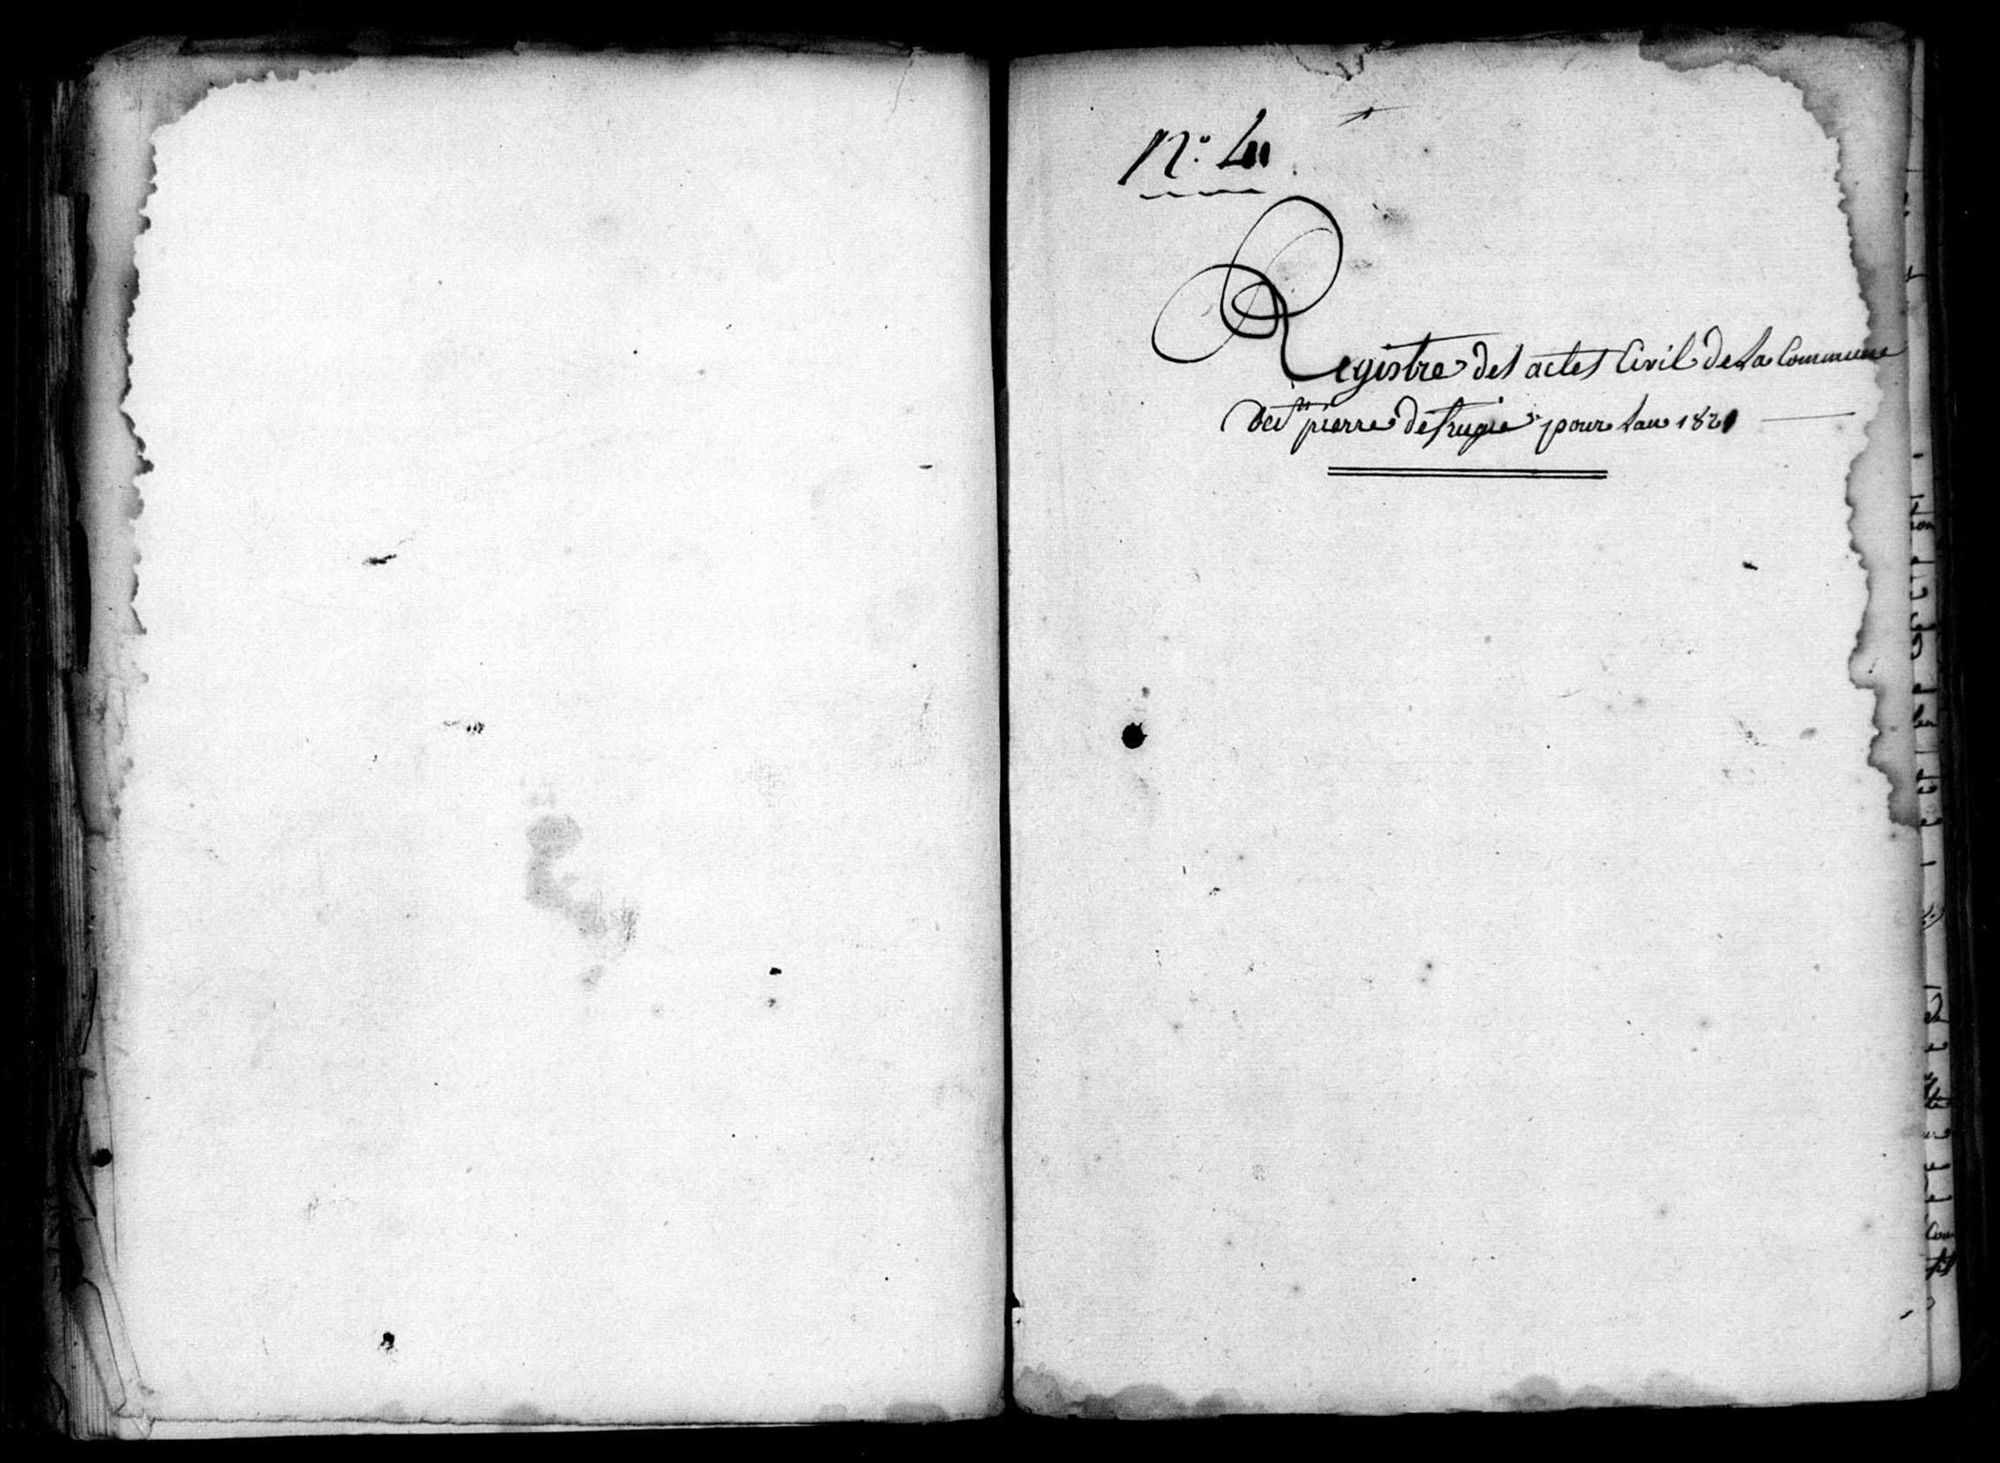 N.o 4
Registre des actes Civil de la Commune
de St pierre defrugie pour lan 1821